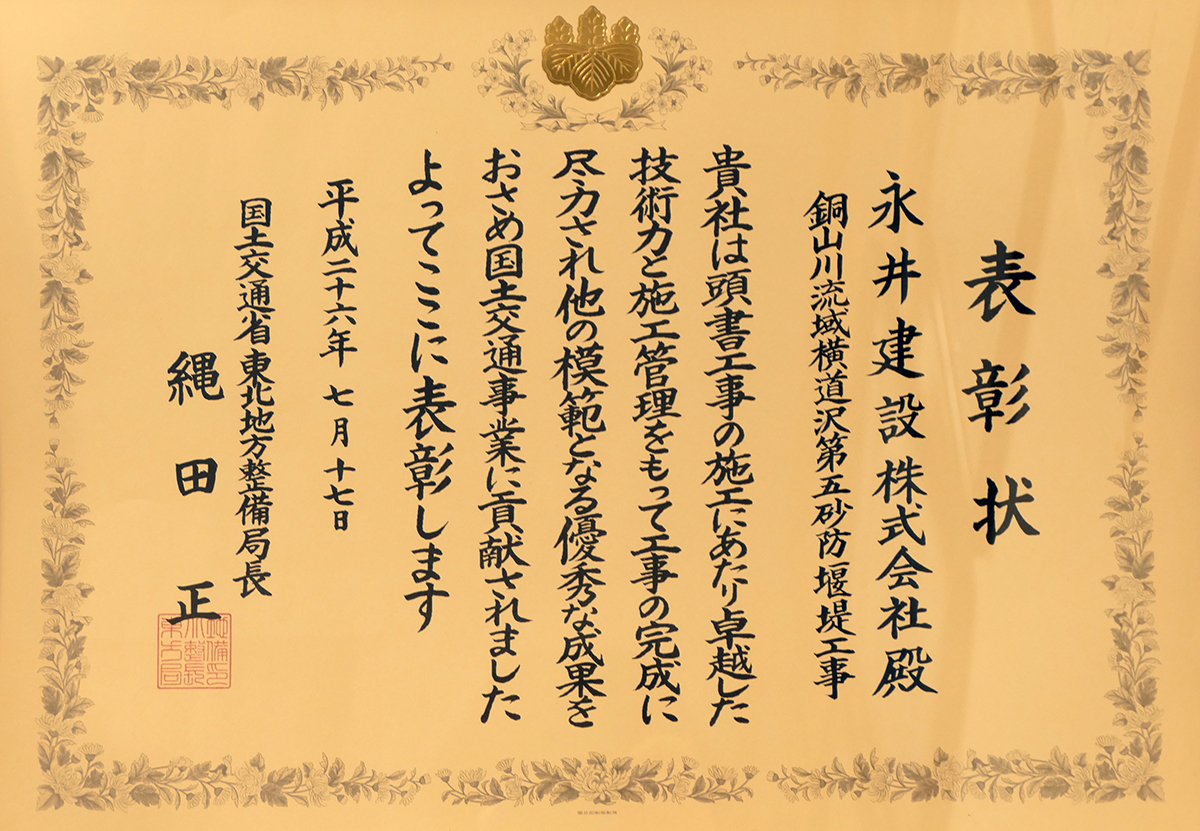 表彰状
永井建設株式会社殿
銅山川流域横道沢第五砂防堰堤工事
貴社は頭書工事の施工にあたり卓越した
技術力と施工管理をもって工事の完成に
尽力され他の模範となる優秀な成果を
おさめ国土交通事業に貢献されました
よってここに表彰します
平成二十六年 七月 十七日
国土交通省 東北地方整備局長
縄田 正